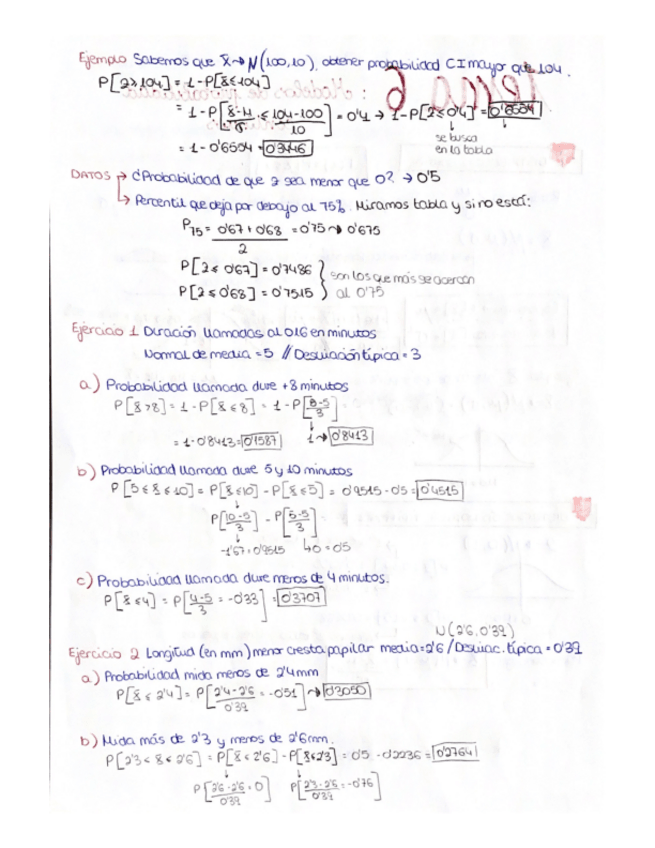 Ejemplo Sabemos que X→N(100,10), obtener probabilidad CI mayor que 104.
P[z≥104] = 1-P[8≤104]
= 1-P[8-M/σ ≤ 104-100/10] = 0'4 → 1-P[z≤0'4] = 0'6554
se busca en la tabla
= 1-0'6554 = 0'3446
DATOS → ¿Probabilidad de que z sea menor que 0? → 0'5
↳ Percentil que deja por debajo al 75%. Miramos tabla y si no está:
P75 = 0'67+0'68/2 = 0'75 → 0'675
P[z≤0'67] = 0'7486 } son los que más se acercan
P[z≤0'68] = 0'7515 } al 0'75
Ejercicio 1 Duración llamadas al 016 en minutos
Normal de media = 5 // Desviación típica = 3
a) Probabilidad llamada dure +8 minutos
P[8>8] = 1-P[8≤8] = 1-P[8-5/3]
= 1-0'8413 = 0'1587 1→ 0'8413
b) Probabilidad llamada dure 5 y 10 minutos
P[5≤8≤10] = P[8≤10] - P[8≤5] = 0'9515-0'5 = 0'4515
P[10-5/3] - P[5-5/3]
→1'67=0'9515 ↳0=0'5
c) Probabilidad llamada dure menos de 4 minutos.
P[8≤4] = P[4-5/3 = -0'33] = 0'3707
N(2'6, 0'39)
Ejercicio 2 Longitud (en mm) menor cresta papilar media=2'6 / Desviac. típica = 0'39
a) Probabilidad mida menos de 2'4mm
P[8≤2'4] = P[2'4-2'6/0'39 = -0'51] → 0'3050
b) Mida más de 2'3 y menos de 2'6mm.
P[2'3<8<2'6] = P[8≤2'6] - P[8≤2'3] = 0'5 - 0'2236 = 0'2764
P[2'6-2'6/0'39 = 0] P[2'3-2'6/0'39 = -0'76]